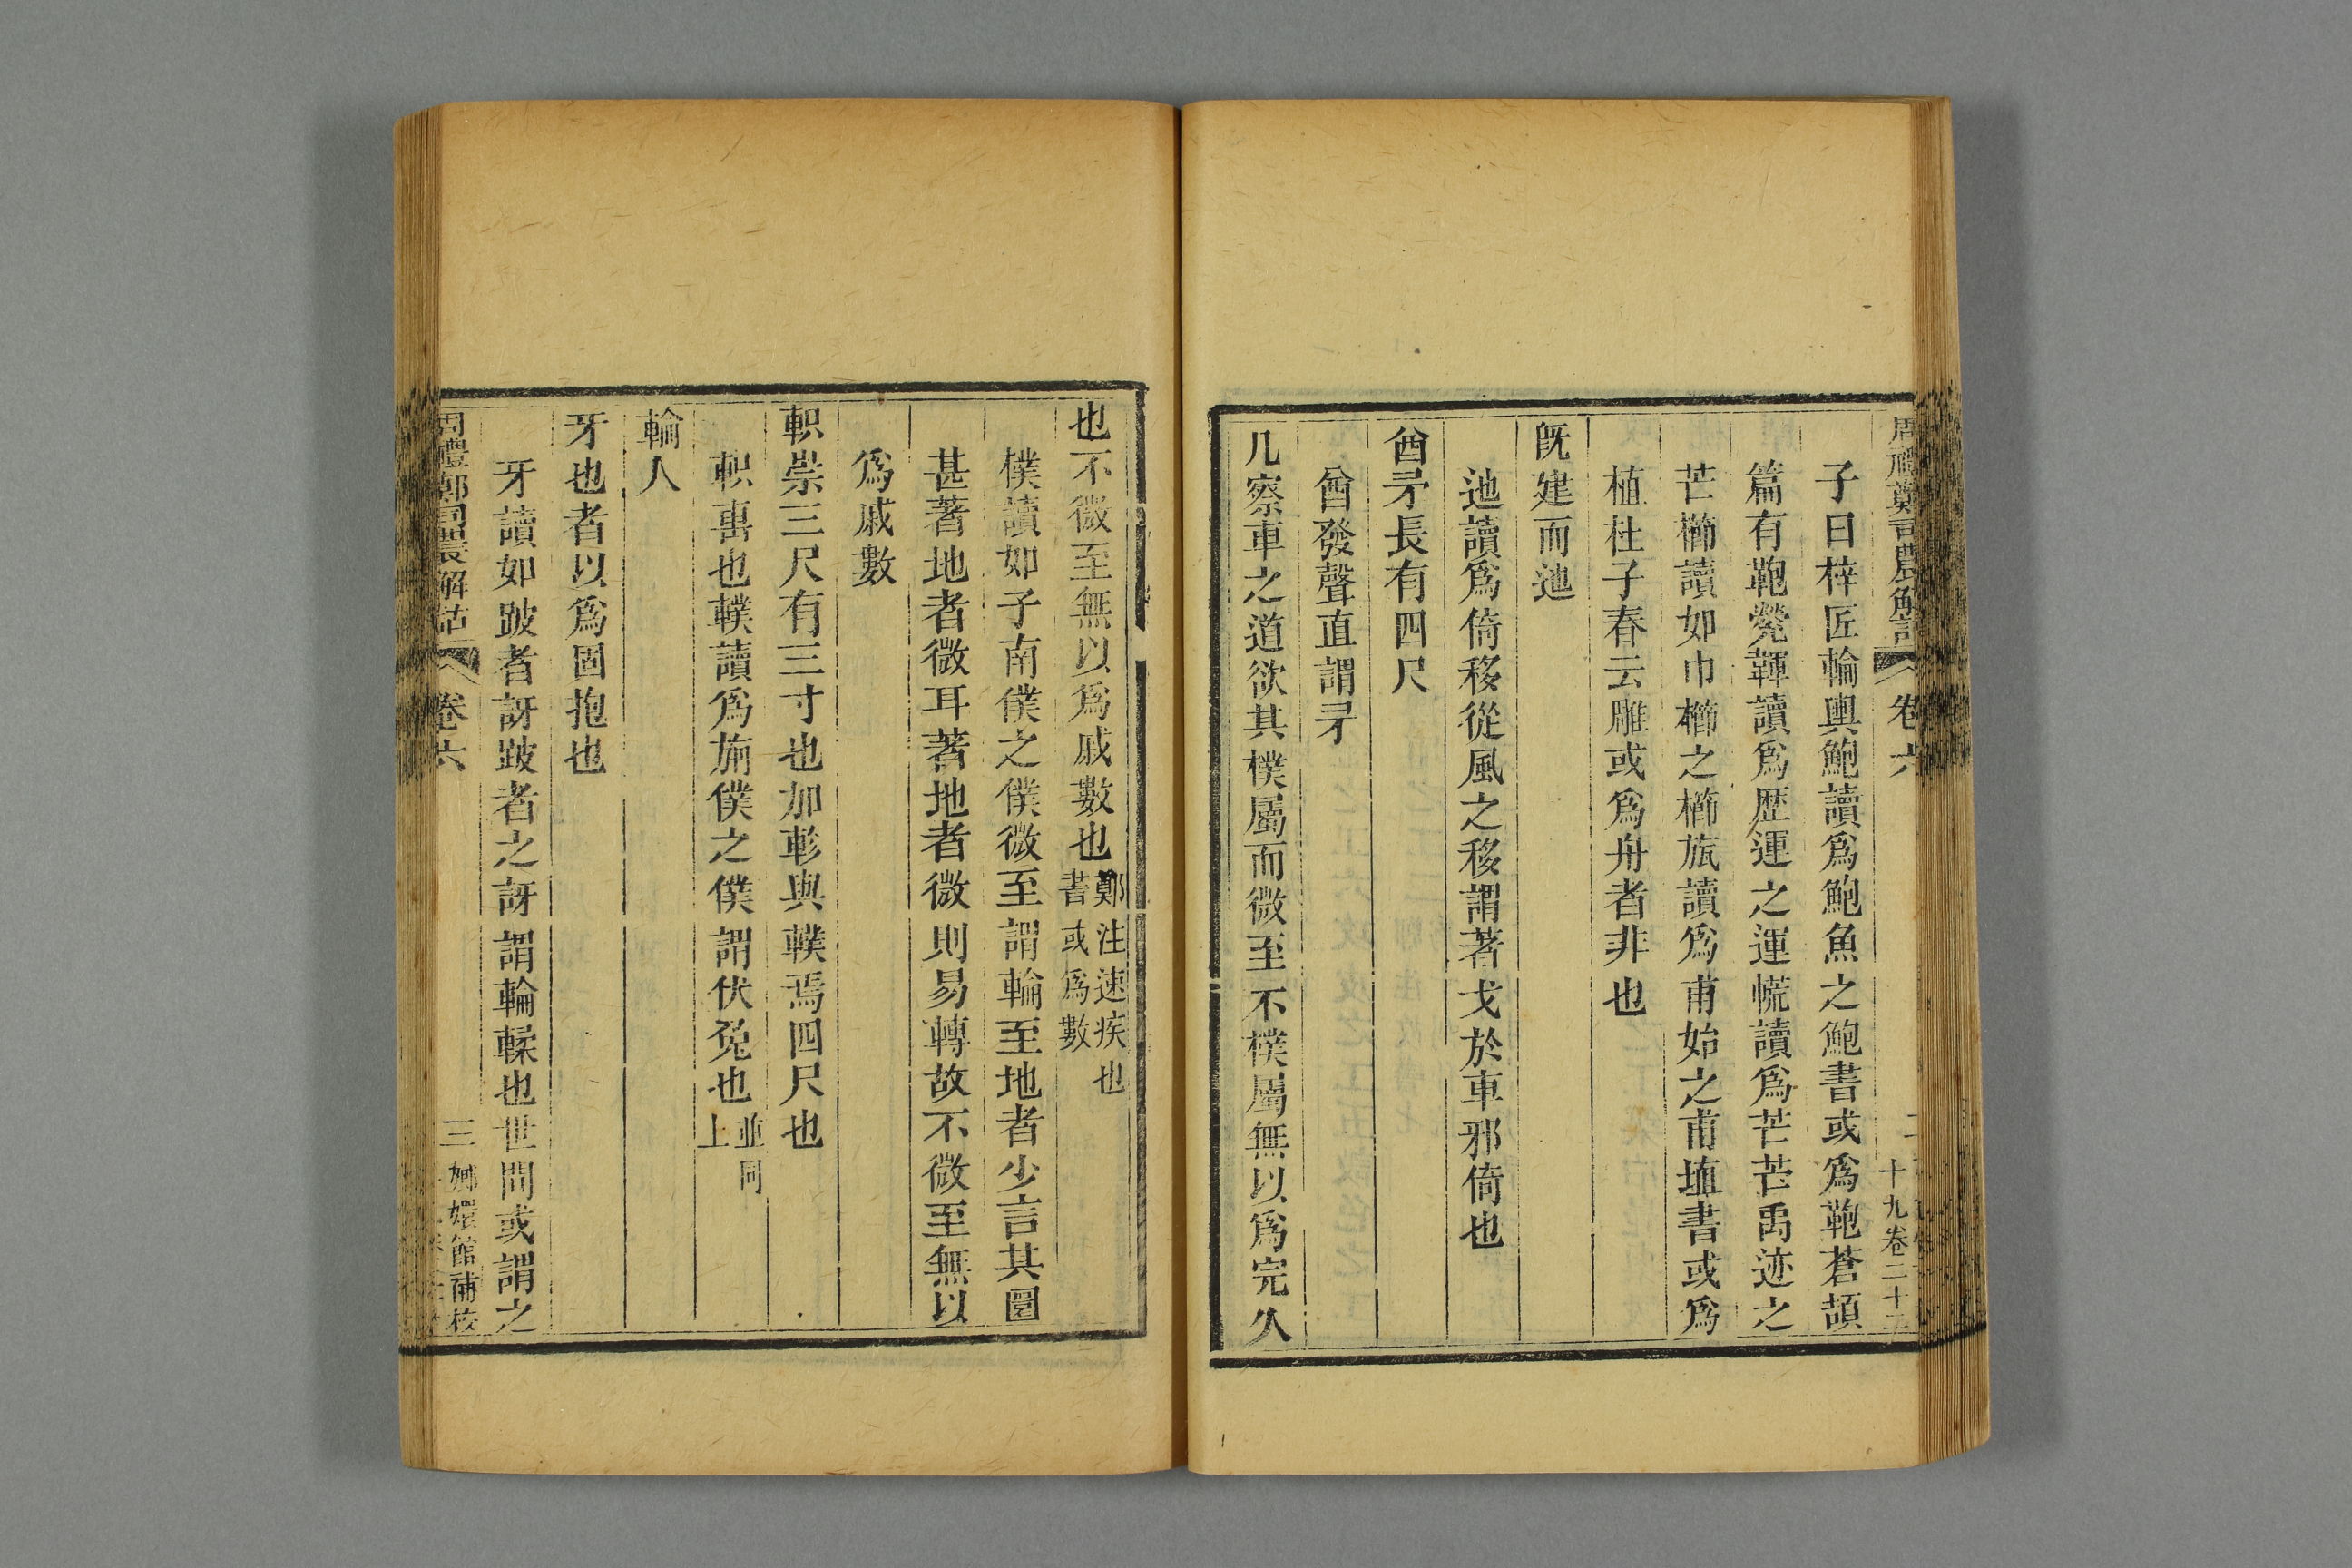 周禮鄭司農解詁 卷六 二
十九卷二十三
子曰梓匠輪輿鮑讀爲鮑魚之鮑書或爲鞄蒼頡
篇有鞄㼱韗讀爲歴運之運㡆讀爲芒芒禹迹之
芒櫛讀如巾櫛之櫛瓬讀爲甫始之甫埴書或爲
植杜子春云雕或爲舟者非也
旣建而迆
迆讀爲倚移從風之移謂著戈於車邪倚也
酋矛長有四尺
酋發聲直謂矛
凡察車之道欲其樸屬而微至不樸屬無以爲完久
也不微至無以爲戚數也鄭注速疾也
書或爲數
樸讀如子南僕之僕微至謂輪至地者少言其圜
甚著地者微耳著地者微則易轉故不微至無以
爲戚數
軹崇三尺有三寸也加軫與轐焉四尺也
軹軎也轐讀爲旆僕之僕謂伏兔也並同
上
輪人
牙也者以爲固抱也
牙讀如跛者訝跛者之訝謂輪輮也世間或謂之
周禮鄭司農解詁 卷六 三
嫏嬛館補校